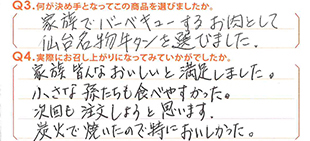 Q3.何が決め手となってこの商品を選びましたか。
家族でバーベキューするお肉として
仙台名物牛タンを選びました.
Q4.実際にお召し上がりになってみていかがでしたか。
家族皆んなおいしいと満足しました。
小さな孫たちも食べやすかった。
次回も注文しようと思います.
炭火で焼いたので特においしかった。